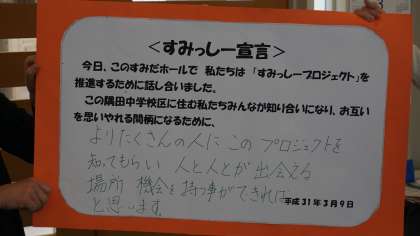 ＜すみっしー宣言＞
今日、このすみだホールで 私たちは 「すみっしープロジェクト」を
推進するために話し合いました。
この隅田中学校区に住む私たちみんなが知り合いになり、お互い
を思いやれる間柄になるために、
よりたくさんの人に この プロジェクトを
知ってもらい 人と人とが 出会える
場所 機会を 持つ事ができれば
と思います。
平成31年3月9日